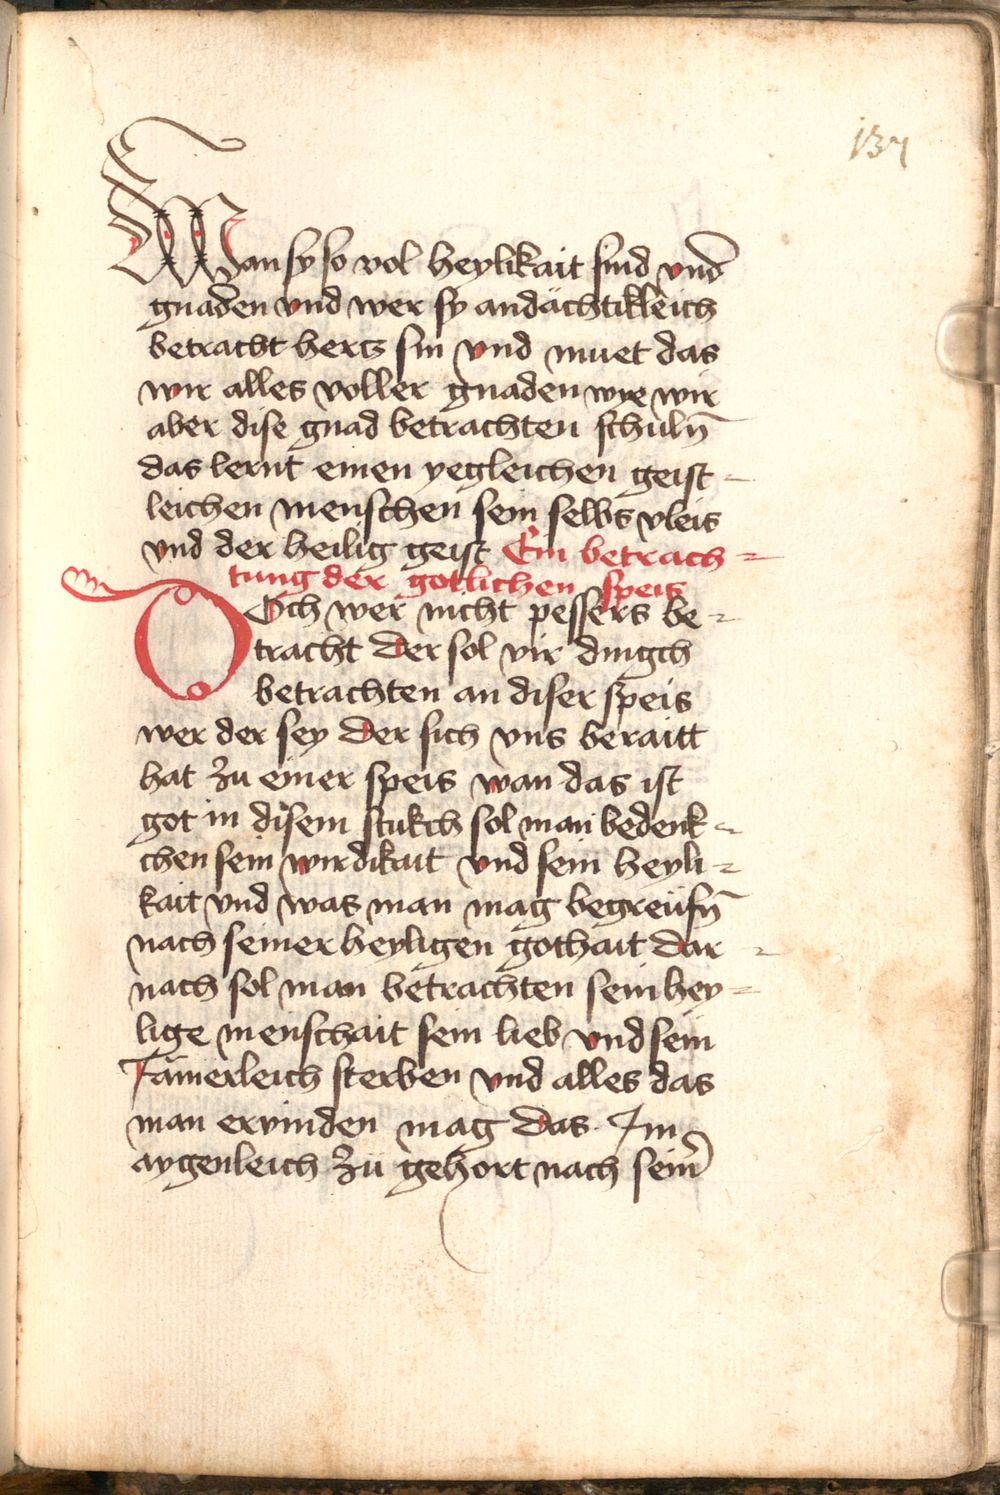 137
Wan sy so vol heylikait sind vnd
gnaden vnd wer sy andächtikleich
betracht hertz sin vnd muet das
wir alles voller gnaden wye wir
aber dise gnad betrachten schuln̄
das lernt einen yegleichen geist-
leichen menschen sein selbs vleis
vnd der heilig geist Ein betrach-
tung der gotlichen speis
Och wer nicht pessers be-
tracht der sol vir dingch
betrachten an diser speis
wer der sey der sich vns beraitt
hat zu einer speis wan das ist
got in disem stukch sol man bedenk-
chen sein wirdikait vnd sein heyli-
kait vnd was man mag begreüfn̄
nach seiner heyligen gothait dar-
nach sol man betrachten sein hey-
lige menschait sein lieb vnd sein
Jämerleich sterben vnd alles das
man ervinden mag das Im
aygenleich zü gehort nach sein̄